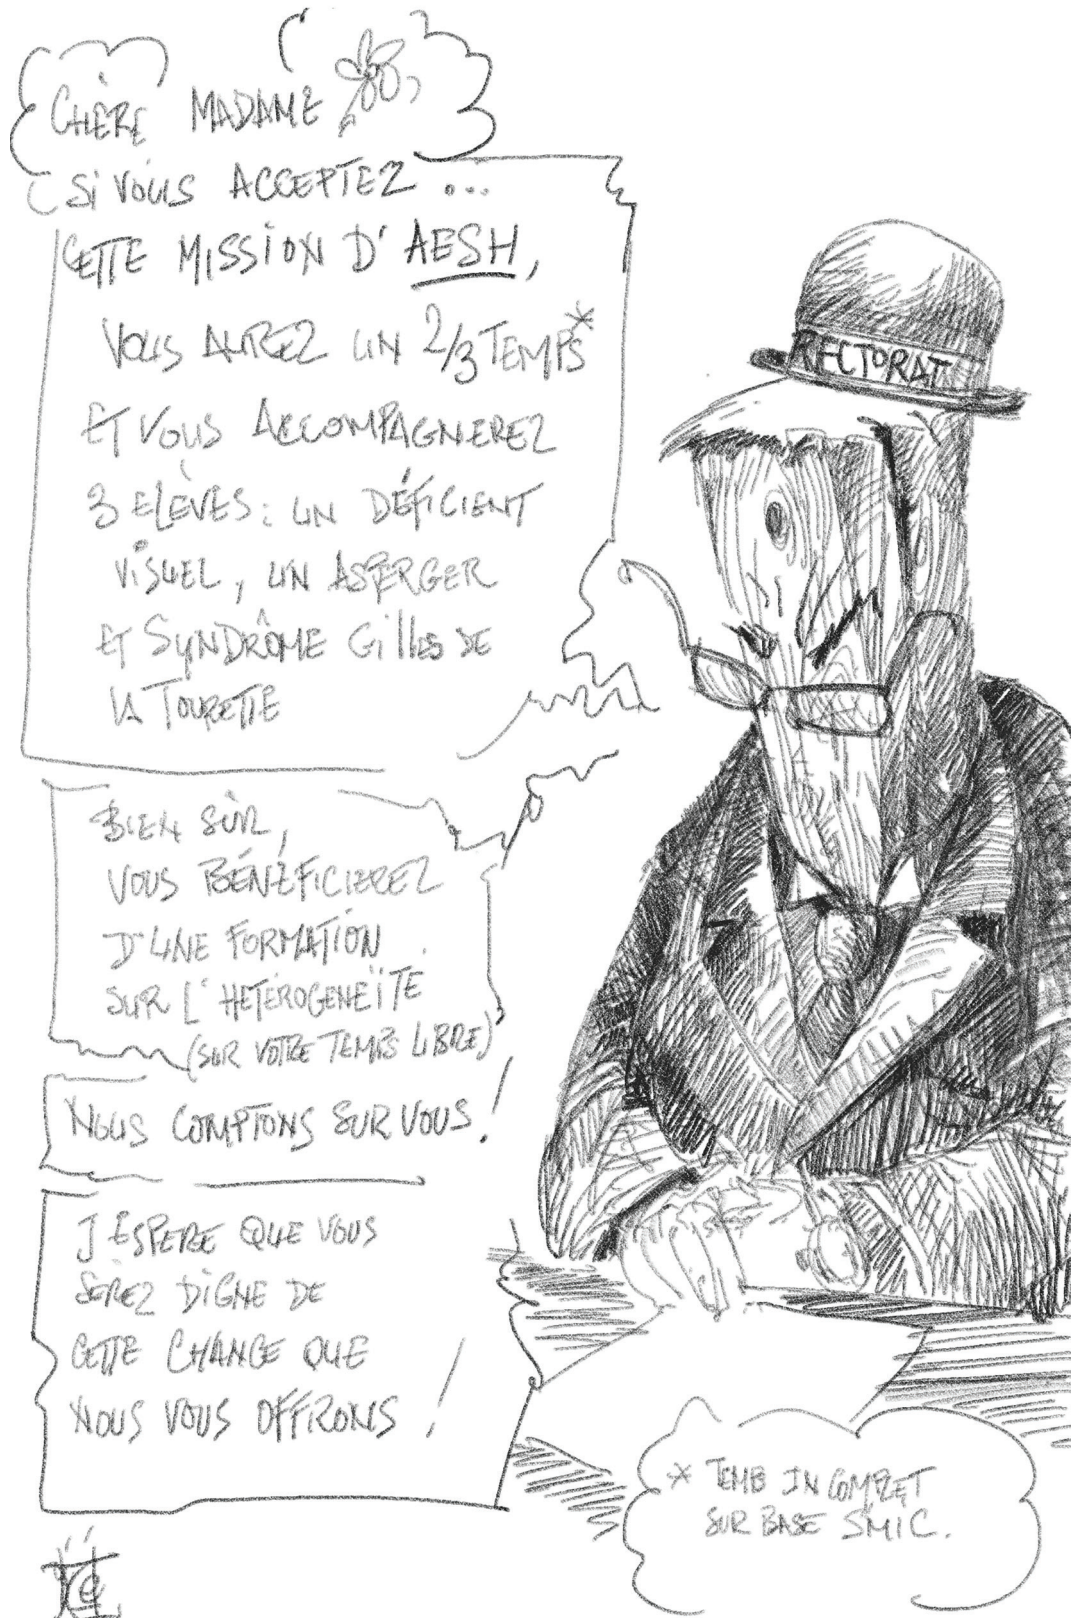 CHÈRE MADAME
SI VOUS ACCEPTEZ ...
CETTE MISSION D'AESH,
VOUS AUREZ UN 2/3 TEMPS*
ET VOUS ACCOMPAGNEREZ
3 ELÈVES : UN DÉFICIENT
VISUEL, UN ASPERGER
ET SYNDRÔME GILLES DE
LA TOURETTE
RECTORAT
BIEN SÛR,
VOUS BÉNÉFICIEREZ
D'UNE FORMATION
SUR L'HETEROGENEÏTÉ
(SUR VOTRE TEMPS LIBRE)
NOUS COMPTONS SUR VOUS !
J'ESPERE QUE VOUS
SEREZ DIGNE DE
CETTE CHANCE QUE
NOUS VOUS OFFRONS !
* TEMPS INCOMPLET
SUR BASE SMIC.